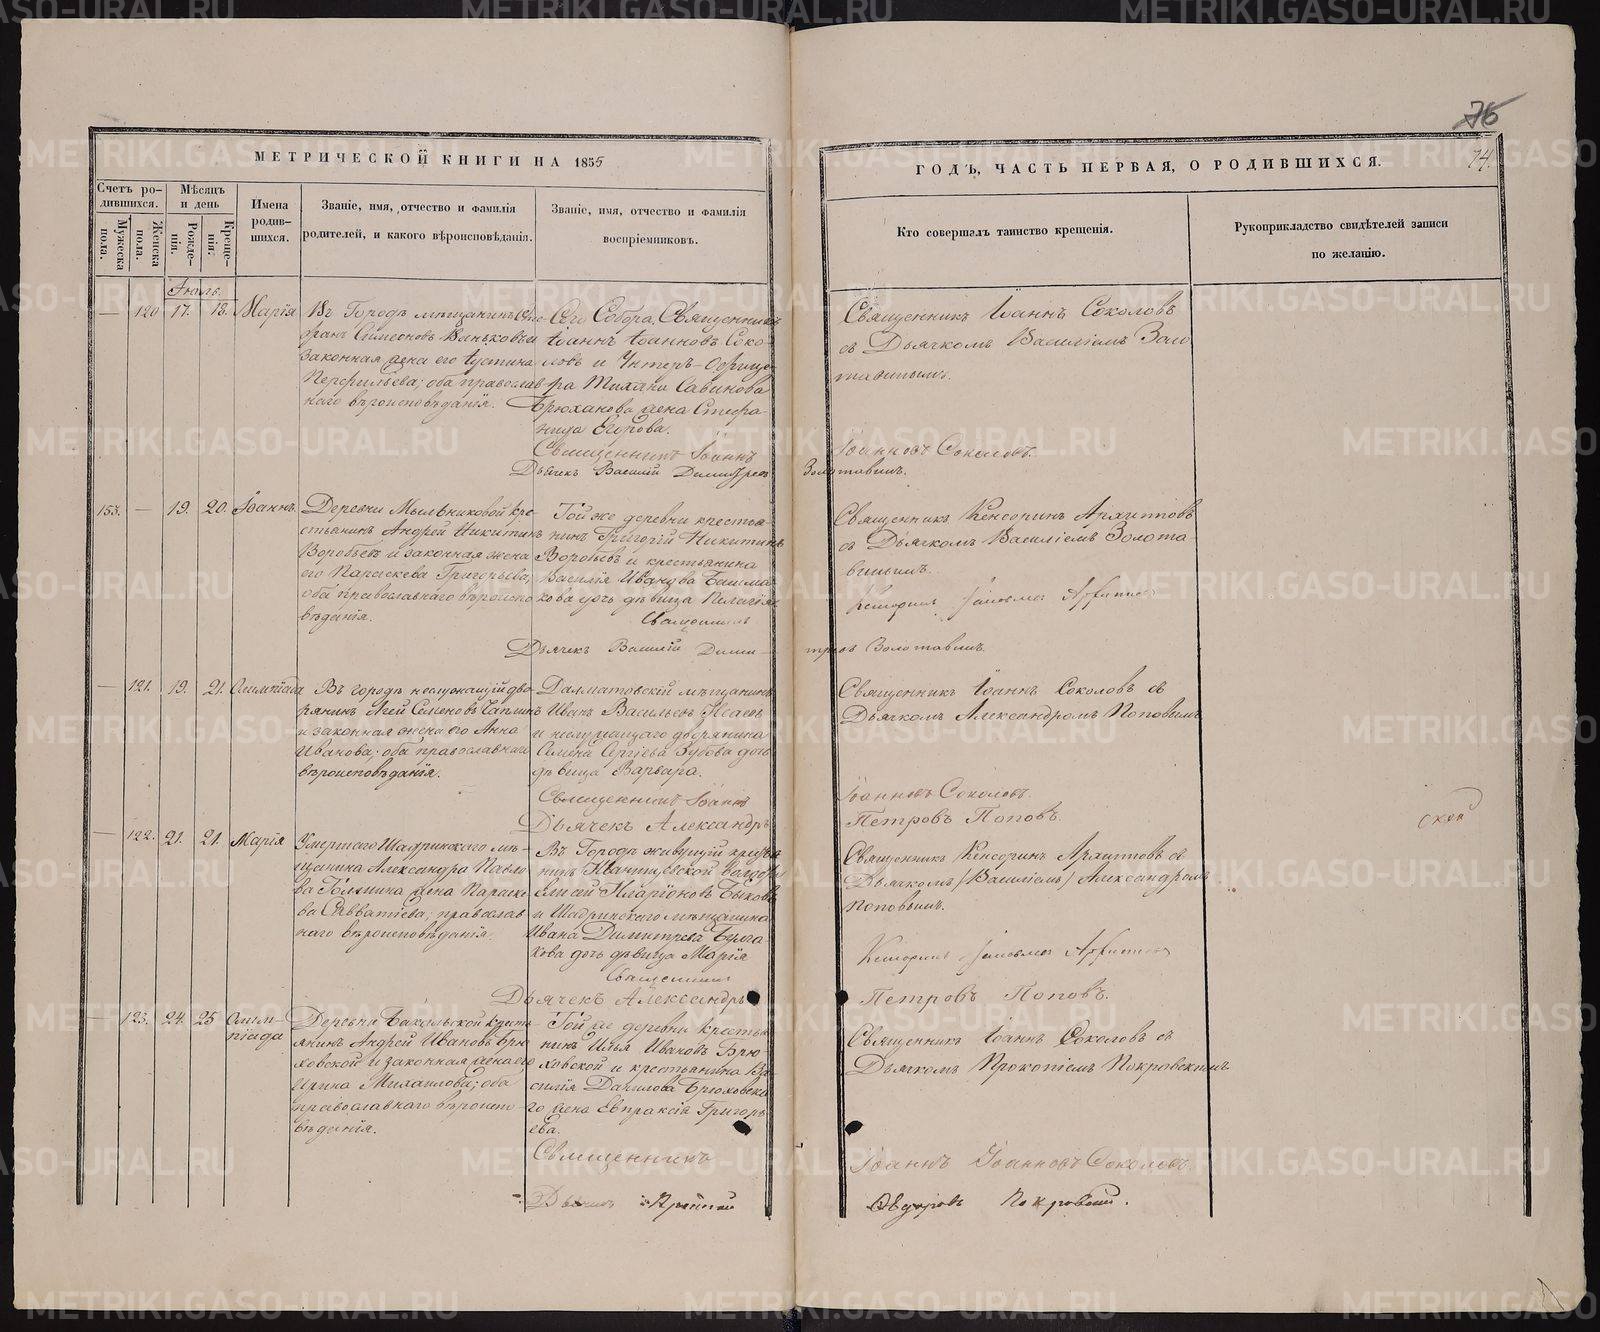 76
МЕТРИЧЕСКОЙ КНИГИ НА 1855
ГОДЪ, ЧАСТЬ ПЕРВАЯ, О РОДИВШИХСЯ.
74.
Счетъ ро-
дившихся.
Мужеска пола.
Женска пола.
Мѣсяцъ
и день
Рожде-
нія.
Креще-
нія.
Имена
родив-
шихся.
Званіе, имя, отчество и фамилія
родителей, и какого вѣроисповѣданія.
Званіе, имя, отчество и фамилія
воспріемниковъ.
Кто совершалъ таинство крещенія.
Рукоприкладство свидѣтелей записи
по желанію.
Іюль.
— 120 17. 18. Марія
Въ Городѣ мѣщанинъ
Симеоновъ
законная жена его Іустина
Перфильева; оба православ
наго вѣроисповѣданія.
Сего Собора, Священникъ
Іоаннъ Іоанновъ Соко-
ловъ и Унтеръ-Офице-
ра Савинова
Брюханова жена Стефа-
нида Егорова.
Священникъ Іоаннъ
Дьячекъ Василій Димитріевъ
Священникъ Іоаннъ Соколовъ
съ Дьячкомъ Василіемъ Золо
тавинымъ.
Іоанновъ Соколовъ.
Золотавинъ.
153. — 19. 20. Іоаннъ.
Деревни Мыльниковой кре-
стьянинъ Андрей Никитинъ
Воробьевъ и законная жена
его Параскева Григорьева,
оба православнаго вѣроиспо
вѣданія.
Той же деревни крестья-
нинъ Григорій Никитинъ
Воробьевъ и крестьянина
Василія Иванова Башма
кова дочь дѣвица Пелагія
Священникъ
Дьячекъ Василій Дими-
Священникъ Кенсоринъ Архиповъ
съ Дьячкомъ Василіемъ Золота-
винымъ.
Кенсоринъ
тріевъ Золотавинъ.
— 121. 19. 21. Олимпіада
Въ городѣ неслужащій дво-
рянинъ Агей Семеновъ Чаплинъ
и законная жена его Анна
Иванова; оба православнаго
вѣроисповѣданія.
Далматовскій мѣщанинъ
Иванъ Васильевъ Исаевъ
и неслужащаго дворянина
Семена Сергіева Зубова дочь
дѣвица Варвара.
Священникъ Іоаннъ
Дьячекъ Александръ
Священникъ Іоаннъ Соколовъ съ
Дьячкомъ Александромъ Поповымъ
Іоанновъ Соколовъ.
Петровъ Поповъ.
— 122. 21. 21. Марія
Умершаго Шадринскаго мѣ-
щанина Александра Павло
ва жена Параске
ва Савватіева; православ
наго вѣроисповѣданія.
Въ Городѣ живущій крестья
нинъ волости
Иларіоновъ Быковъ
и Шадринскаго мѣщанина
Ивана Димитріева Булга
кова дочь дѣвица Марія
Священникъ
Дьячекъ Александръ
Священникъ Кенсоринъ Архиповъ съ
Дьячкомъ (Василіемъ) Александромъ
Поповымъ.
Кенсоринъ
Петровъ Поповъ.
— 123. 24. 25 Олим-
піада
Деревни Бакальской кресть-
янинъ Андрей Ивановъ Брю
ховской и законная жена его
Ирина Михаилова; оба
православнаго вѣроиспо-
вѣданія.
Той же деревни крестья
нинъ Илья Ивановъ Брю
ховской и крестьянина Ва
силія Данилова Брюховска
го жена Евпраксія Григорь
ева.
Священникъ
Дьячекъ
Священникъ Іоаннъ Соколовъ съ
Дьячкомъ Прокопіемъ Покровскимъ
Іоаннъ Іоанновъ Соколовъ.
Ѳедоровъ Покровскій.
METRIKI.GASO-URAL.RU